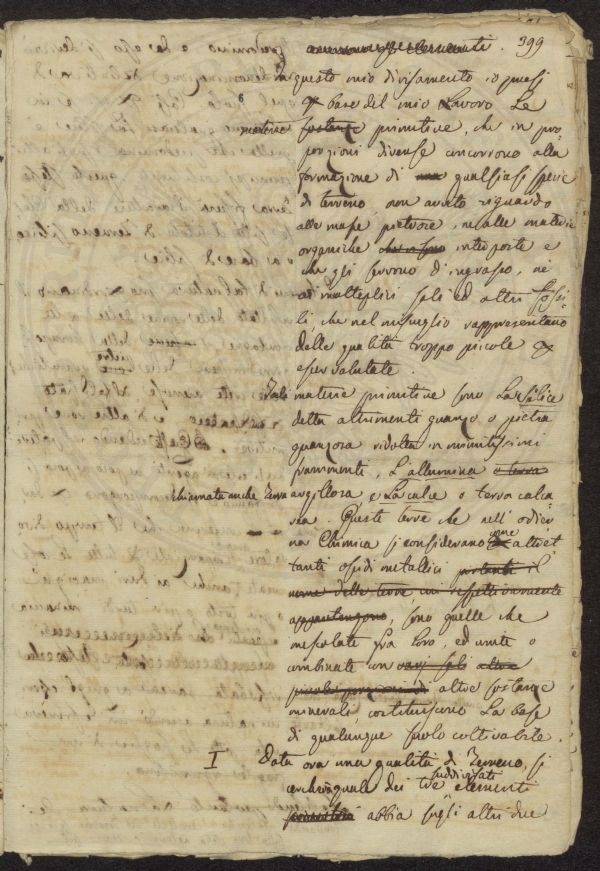 399
In questo mio divisamento io presi
p base del mio Lavoro Le
materie sostanze primitive, che in pro-
porzioni diverse concorrono alla
formazione di qualsiasi specie
di terreno, non avuto riguardo
alle masse pietrose, nè alle materie
organiche che vi sono interposte e
che gli servono di ingrasso, nè
ai molteplici sali ed altri fossi-
li, che nel miscuglio rappresentano
delle qualità troppo picole p
esser valutate.
Tali materie primitive sono La Silice
detta altrimenti quarzo o pietra
quarzosa ridotta in minutissimi
frammenti, L'allumina o terra
chiamata anche Terra argillosa, e La calce o terra calca-
rea. Queste terre che nell'odier-
na Chimica si considerano come altret
tanti ossidi metallici portanti il
nome delle terre cui rispettivamente
appartengono, sono quelle che
mescolate fra Loro, ed unite o
combinate con varj sali altre
piccole porzioni di altre sostanze
minerali, costituiscono La base
di qualunque suolo coltivabile.
I Data ora una qualità di Terreno, si
cerchi quale dei tre suddivisati elementi
abbia sugli altri due